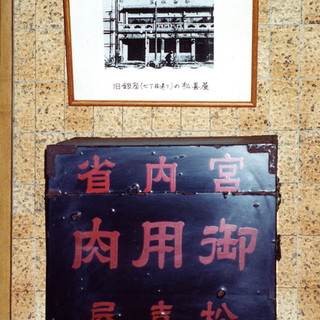 旧銀座(七丁目通り)の松喜屋
宮内省
御用肉
松喜屋